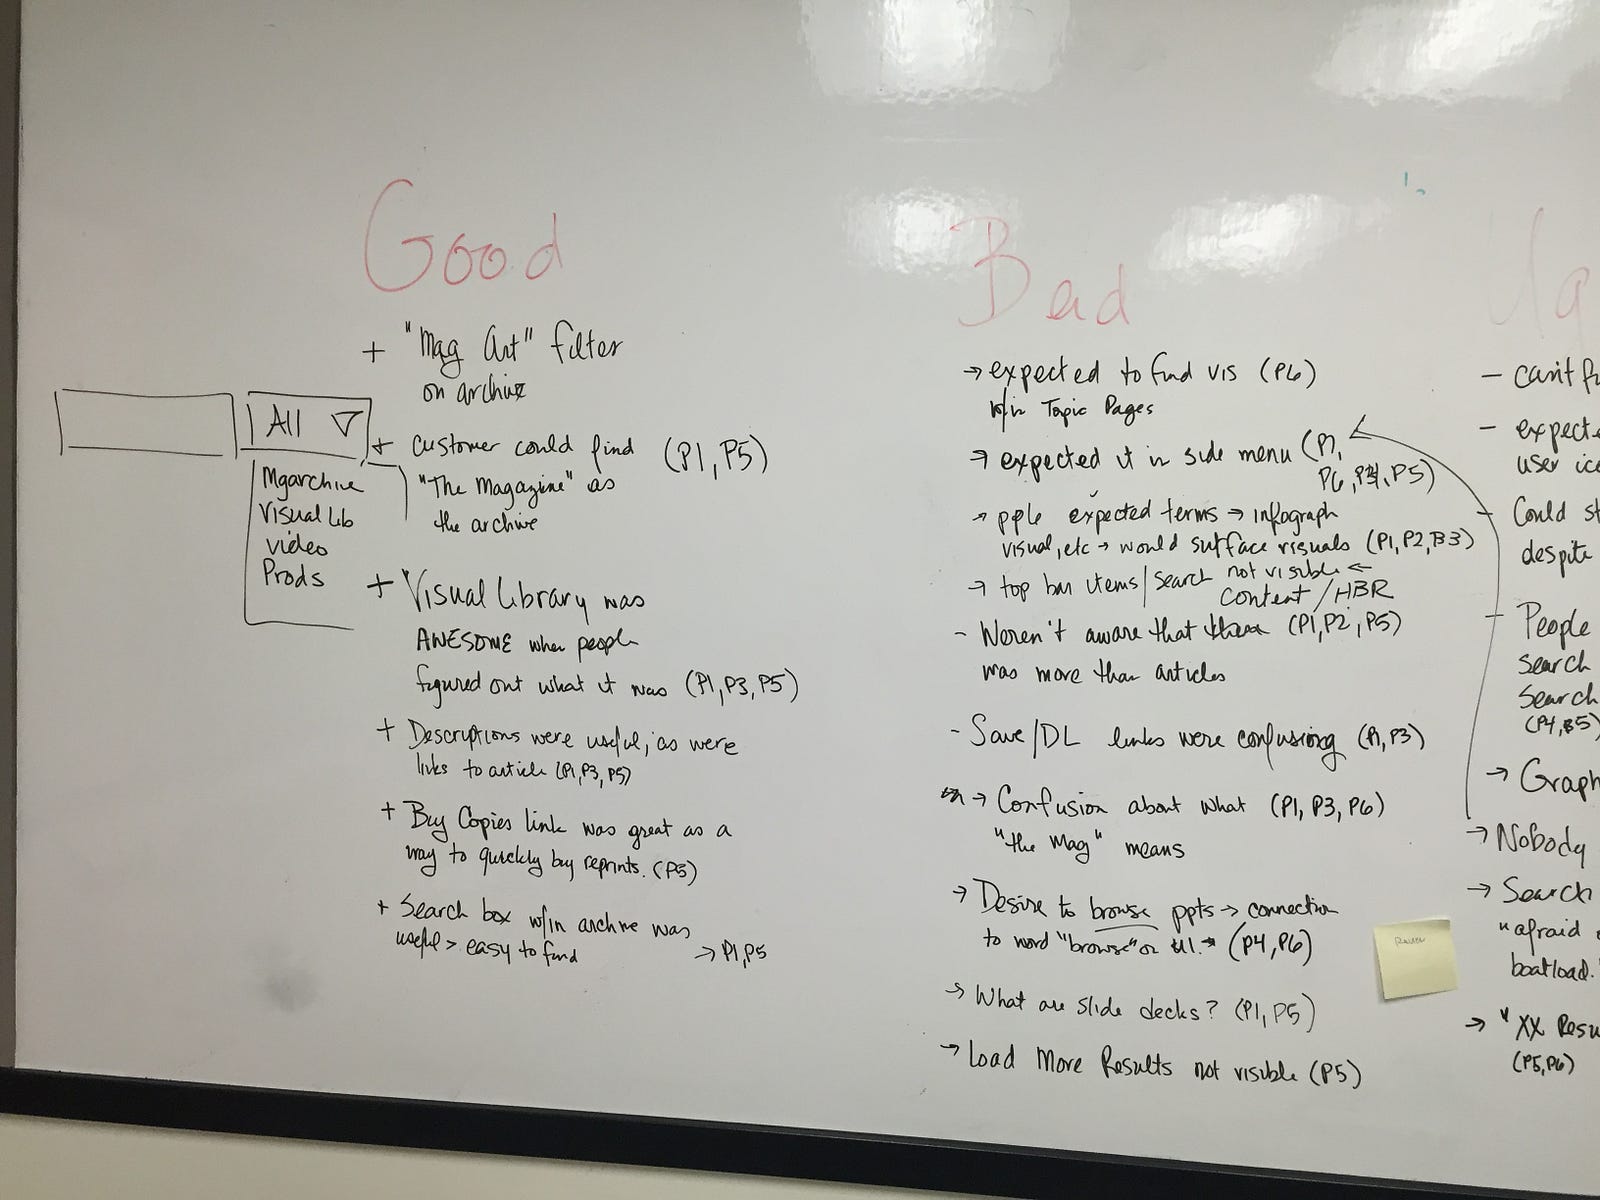 Good
+ "Mag Art" filter
on archive
All ▽
Mgarchive
Visual Lib
Video
Prods
+ Customer could find (P1, P5)
"The Magazine" as
the archive
+ Visual Library was
AWESOME when people
figured out what it was (P1, P3, P5)
+ Descriptions were useful, as were
links to article (P1, P3, P5)
+ Buy Copies link was great as a
way to quickly buy reprints. (P5)
+ Search box w/in archive was
useful > easy to find → P1, P5
Bad
→ expected to find vis (P6)
w/in Topic Pages
→ expected it in side menu (P1,
P6, P4, P5)
→ pple expected terms → infograph
visual, etc → would surface visuals (P1, P2, P3)
→ top bar items/search not visible ←
content/HBR
- Weren't aware that there (P1, P2, P5)
was more than articles
- Save/DL links were confusing (P1, P3)
→ Confusion about what (P1, P3, P6)
"the Mag" means
→ Desire to browse ppts → connection
to word "browse" on UI. → (P4, P6)
→ What are slide decks? (P1, P5)
→ Load More Results not visible (P5)
Ug
- can't f
- expecte
user ic
- Could st
despite
- People
search
search
(P4, P5)
→ Graph
→ Nobody
→ Search
"afraid
boatload."
→ "XX Resu
(P5, P6)